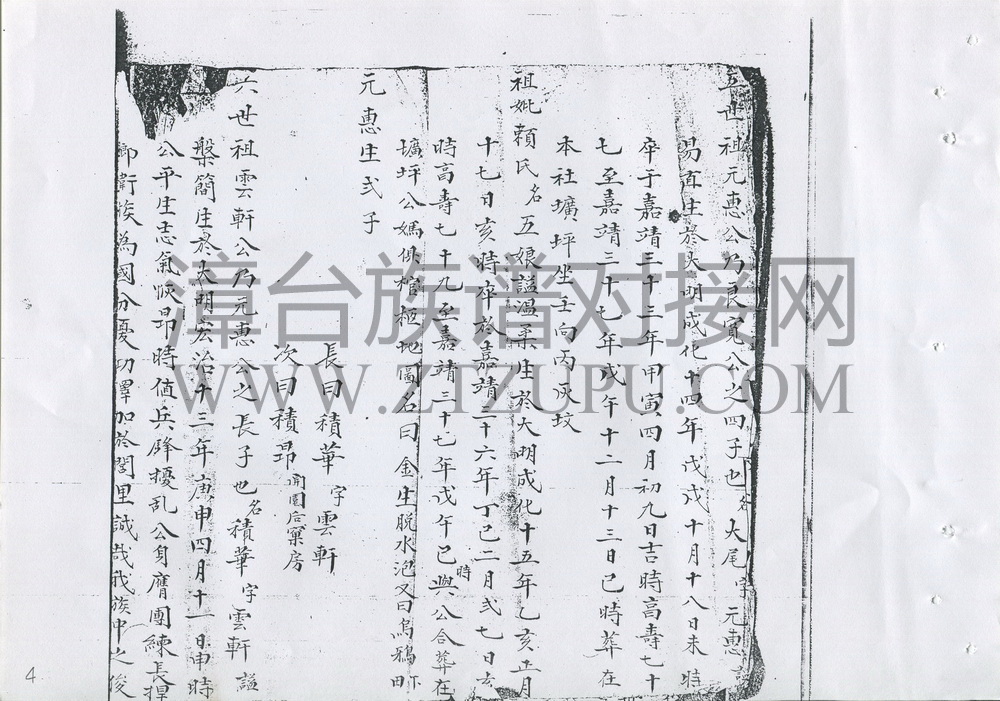 五世祖元惠公乃良寬公之四子也名大尾字元惠諡
易直生於大明成化十四年戊戌十月十八日未時
卒于嘉靖三十三年甲寅四月初九日吉時高壽七十
七至嘉靖三十七年戊午十二月十三日巳時葬在
本社壙坪坐壬向丙灰坟
祖妣賴氏名五娘諡温柔生於大明成化十五年乙亥正月
十七日亥時卒於嘉靖三十六年丁巳二月弍七日亥
時高壽七十九至嘉靖三十七年戊午巳時與公合葬在
壙坪公媽俱棺柩地圖名曰金生脫水泡又曰烏鴉町田
元惠生弍子
長曰積華字雲軒
次曰積昂開圍后寮房
六世祖雲軒公乃元惠公之長子也名積華字雲軒諡
槃簡生於大明宏治十三年庚申四月十一日申時
公平生志氣恢昂時值兵燹擾乱公身膺團練長捍
鄉衛族為國分憂功澤加於閭里誠哉我族中之俊
漳台族谱对接网
WWW.ZTZUPU.COM
4